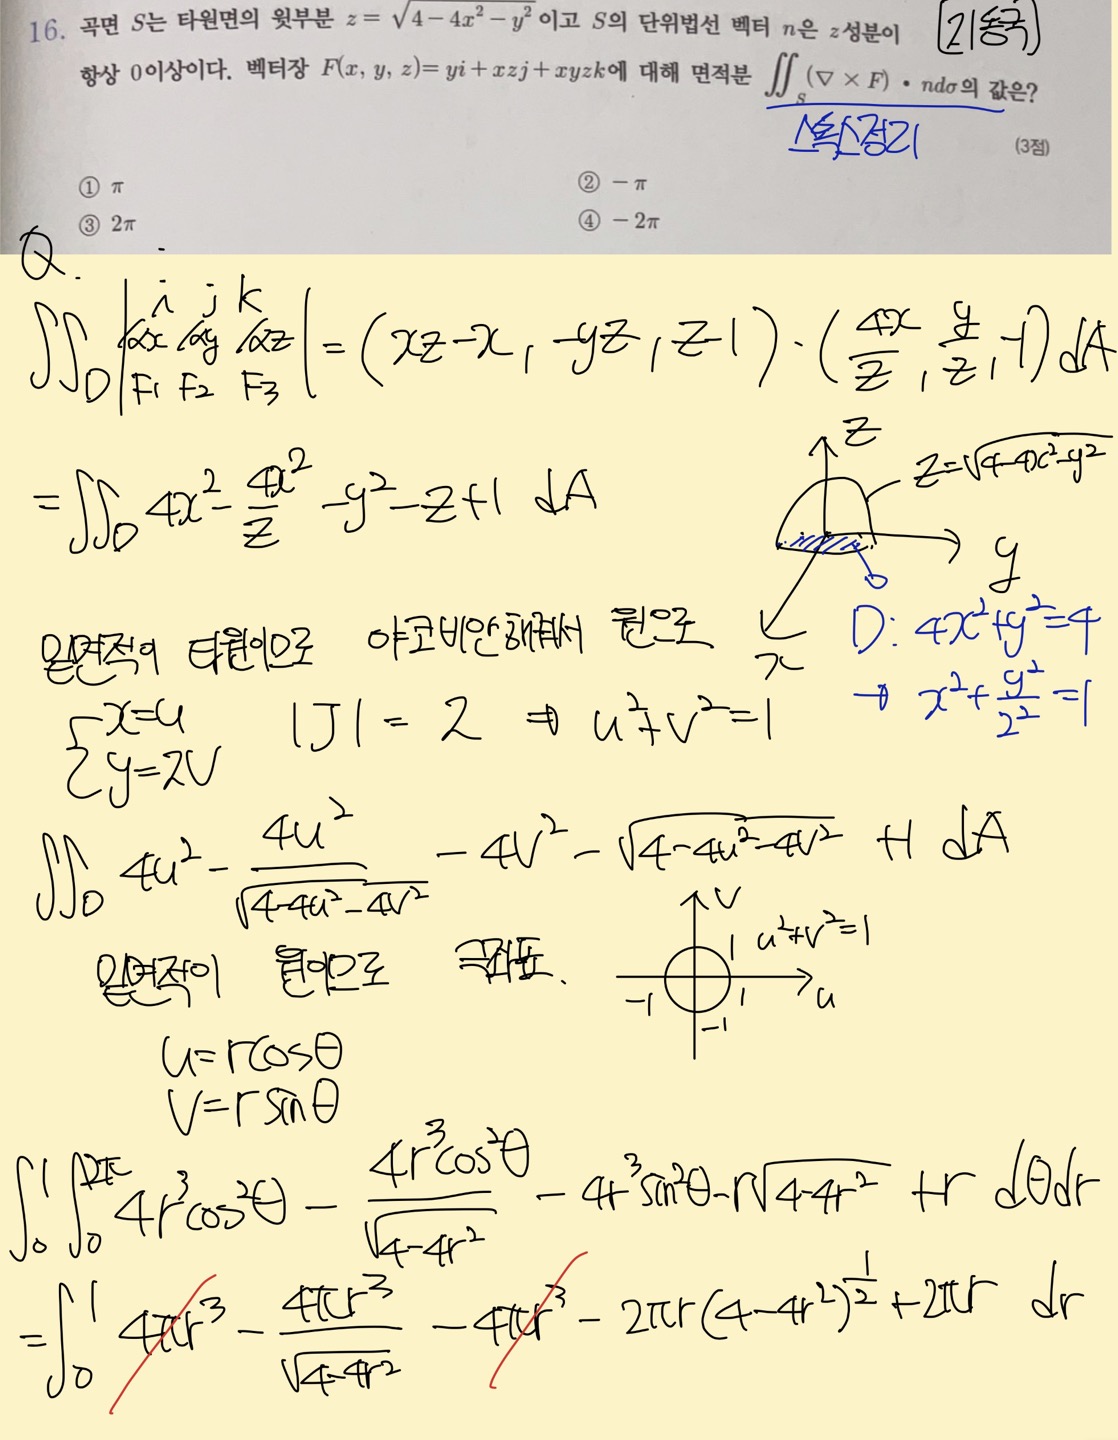 16. 곡면 S는 타원면의 윗부분 z = √(4 − 4x² − y²) 이고 S의 단위법선 벡터 n은 z성분이
[21동국]
항상 0이상이다. 벡터장 F(x, y, z) = yi + xzj + xyzk에 대해 면적분 ∬_S (∇ × F) • ndσ의 값은?
스톡스정리
(3점)
① π ② − π
③ 2π ④ − 2π
Q.
∬_D | i j k
∂x ∂y ∂z
F1 F2 F3 | = (xz−x, −yz, z−1) · (4x/z, y/z, −1) dA
= ∬_D 4x² − 4x²/z − y² − z + 1 dA
z
z = √(4−4x²−y²)
y
x
D: 4x²+y²=4
→ x² + y²/2² = 1
밑면적이 타원이므로 야코비안해줘서 원으로
{ x=u
y=2v
|J| = 2 ⇒ u²+v²=1
∬_D 4u² − 4u²/√(4−4u²−4v²) − 4v² − √(4−4u²−4v²) + 1 dA
밑면적이 원이므로 극좌표.
v
u²+v²=1
1
−1 1 u
−1
u=rcosθ
v=rsinθ
∫₀¹ ∫₀^2π 4r³cos²θ − 4r³cos²θ/√(4−4r²) − 4r³sin²θ − r√(4−4r²) + r dθdr
= ∫₀¹ 4πr³ − 4πr³/√(4−4r²) − 4πr³ − 2πr(4−4r²)^(1/2) + 2πr dr